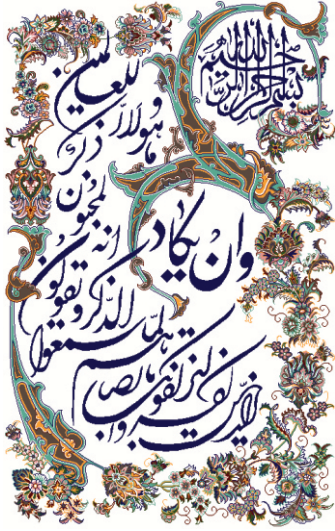 بسم الله الرحمن الرحیم
وان یکاد
الذین کفروا لیزلقونک بابصارهم
لما سمعوا
الذکر ویقولون
انه لمجنون
وما هو الا ذکر
للعالمین